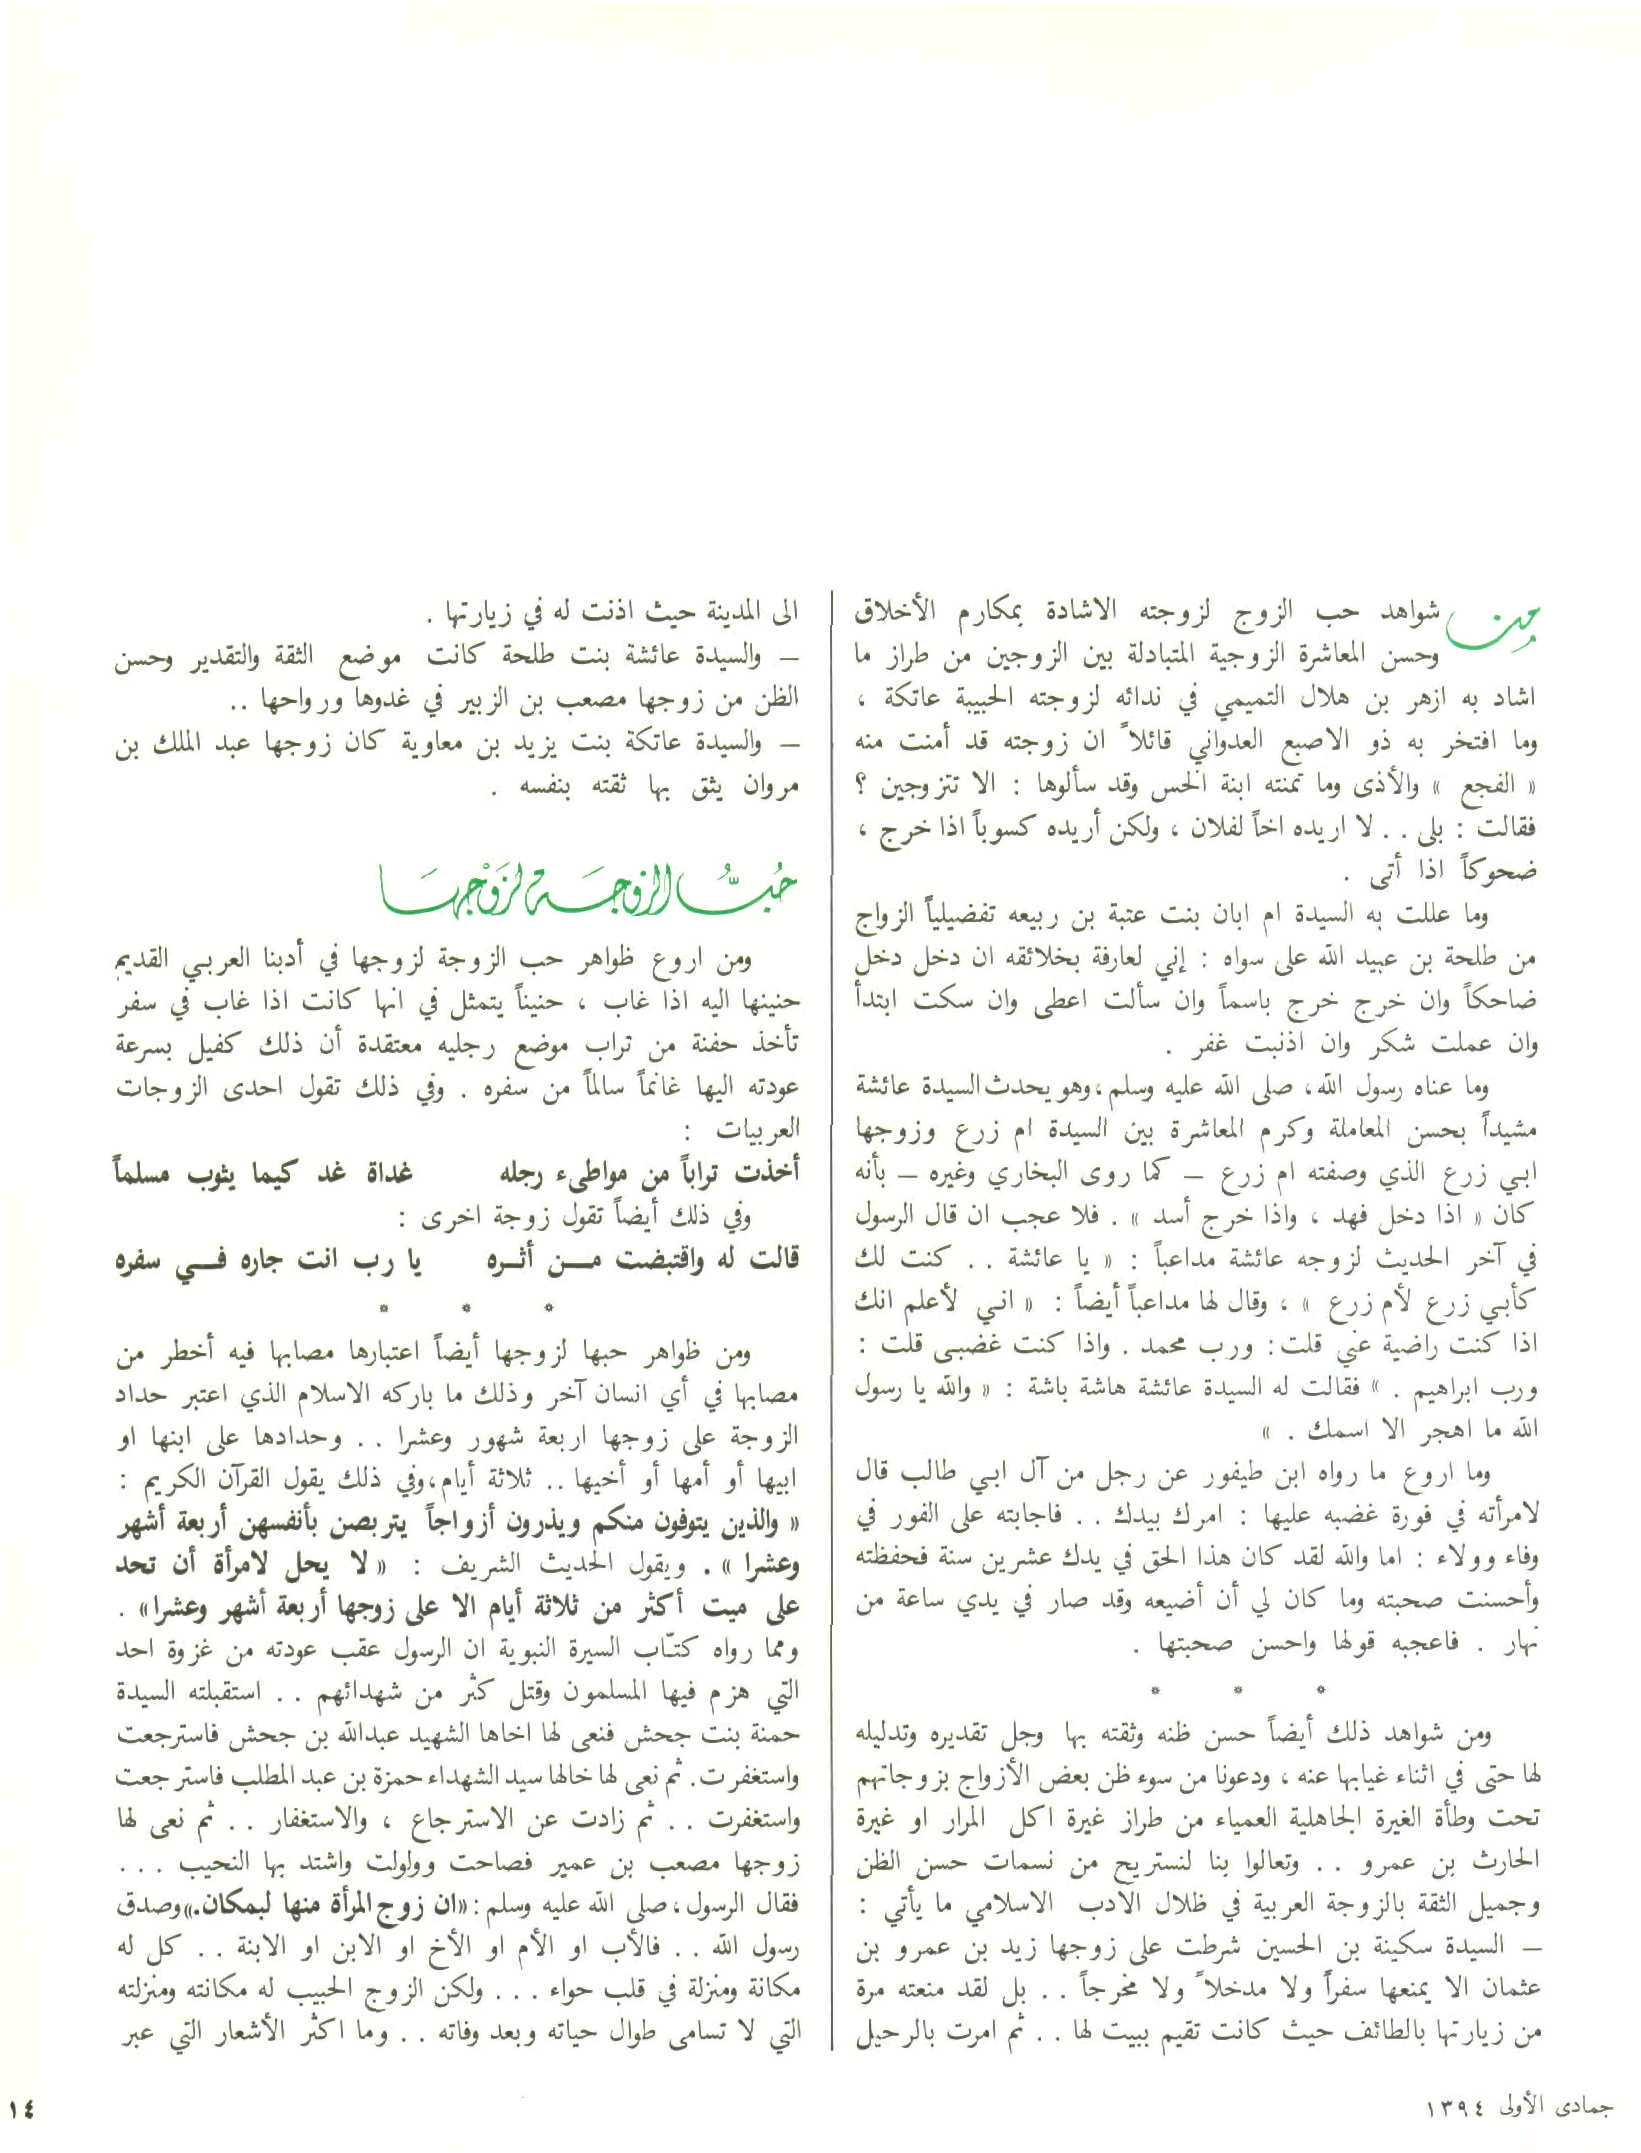 من شواهد حب الزوج لزوجته الاشادة بمكارم الأخلاق
وحسن المعاشرة الزوجية المتبادلة بين الزوجين من طراز ما
اشاد به ازهر بن هلال التميمي في ندائه لزوجته الحبيبة عاتكة ،
وما افتخر به ذو الاصبع العدواني قائلاً ان زوجته قد أمنت منه
« الفجع » والأذى وما تمنته ابنة الخس وقد سألوها : الا تتزوجين ؟
فقالت : بلى . . لا اريده اخاً لفلان ، ولكن أريده كسوباً اذا خرج ،
ضحوكاً اذا أتى .
وما عللت به السيدة ام ابان بنت عتبة بن ربيعه تفضيلياً الزواج
من طلحة بن عبيد الله على سواه : إني لعارفة بخلائقه ان دخل دخل
ضاحكاً وان خرج خرج باسماً وان سألت اعطى وان سكت ابتدأ
وان عملت شكر وان اذنبت غفر .
وما عناه رسول الله، صلى الله عليه وسلم،وهو يحدث السيدة عائشة
مشيداً بحسن المعاملة وكرم المعاشرة بين السيدة ام زرع وزوجها
ابي زرع الذي وصفته ام زرع – كما روى البخاري وغيره – بأنه
كان « اذا دخل فهد ، واذا خرج أسد » . فلا عجب ان قال الرسول
في آخر الحديث لزوجه عائشة مداعباً : « يا عائشة . . كنت لك
كأبي زرع لأم زرع » ، وقال لها مداعباً أيضاً : « اني لأعلم انك
اذا كنت راضية عني قلت: ورب محمد . واذا كنت غضبى قلت :
ورب ابراهيم . » فقالت له السيدة عائشة هاشة باشة : « والله يا رسول
الله ما اهجر الا اسمك . »
وما اروع ما رواه ابن طيفور عن رجل من آل ابي طالب قال
لامرأته في فورة غضبه عليها : امرك بيدك . . فاجابته على الفور في
وفاء وولاء : اما والله لقد كان هذا الحق في يدك عشرين سنة فحفظته
وأحسنت صحبته وما كان لي أن أضيعه وقد صار في يدي ساعة من
نهار . فاعجبه قولها واحسن صحبتها .
* * *
ومن شواهد ذلك أيضاً حسن ظنه وثقته بها وجل تقديره وتدليله
لها حتى في اثناء غيابها عنه ، ودعونا من سوء ظن بعض الأزواج بزوجاتهم
تحت وطأة الغيرة الجاهلية العمياء من طراز غيرة اكل المرار او غيرة
الحارث بن عمرو . . وتعالوا بنا لنستريح من نسمات حسن الظن
وجميل الثقة بالزوجة العربية في ظلال الأدب الاسلامي ما يأتي :
– السيدة سكينة بن الحسين شرطت على زوجها زيد بن عمرو بن
عثمان الا يمنعها سفراً ولا مدخلاً ولا مخرجاً . . بل لقد منعته مرة
من زيارتها بالطائف حيث كانت تقيم ببيت لها . . ثم امرت بالرحيل
الى المدينة حيث اذنت له في زيارتها .
– والسيدة عائشة بنت طلحة كانت موضع الثقة والتقدير وحسن
الظن من زوجها مصعب بن الزبير في غدوها ورواحها ..
– والسيدة عاتكة بنت يزيد بن معاوية كان زوجها عبد الملك بن
مروان يثق بها ثقته بنفسه .
حُبُّ الزوجَة لزَوْجهَا
ومن اروع ظواهر حب الزوجة لزوجها في أدبنا العربي القديم
حنينها اليه اذا غاب ، حنيناً يتمثل في انها كانت اذا غاب في سفر
تأخذ حفنة من تراب موضع رجليه معتقدة أن ذلك كفيل بسرعة
عودته اليها غانماً سالماً من سفره . وفي ذلك تقول احدى الزوجات
العربيات :
أخذت تراباً من مواطىء رجله غداة غد كيما يثوب مسلماً
وفي ذلك أيضاً تقول زوجة اخرى :
قالت له واقتبضت مـن أثـره يا رب انت جاره فـي سفره
* * *
ومن ظواهر حبها لزوجها أيضاً اعتبارها مصابها فيه أخطر من
مصابها في أي انسان آخر وذلك ما باركه الاسلام الذي اعتبر حداد
الزوجة على زوجها اربعة شهور وعشرا . . وحدادها على ابنها او
ابيها أو أمها أو أخيها .. ثلاثة أيام،وفي ذلك يقول القرآن الكريم :
« والذين يتوفون منكم ويذرون أزواجاً يتربصن بأنفسهن أربعة أشهر
وعشرا » . ويقول الحديث الشريف : « لا يحل لامرأة أن تحد
على ميت أكثر من ثلاثة أيام الا على زوجها أربعة أشهر وعشرا» .
ومما رواه كتّاب السيرة النبوية ان الرسول عقب عودته من غزوة احد
التي هزم فيها المسلمون وقتل كثر من شهدائهم . . استقبلته السيدة
حمنة بنت جحش فنعى لها اخاها الشهيد عبدالله بن جحش فاسترجعت
واستغفرت. ثم نعى لها خالها سيد الشهداء حمزة بن عبد المطلب فاسترجعت
واستغفرت . . ثم زادت عن الاسترجاع ، والاستغفار . . ثم نعى لها
زوجها مصعب بن عمير فصاحت وولولت واشتد بها النحيب . . .
فقال الرسول، صلى الله عليه وسلم :«ان زوج المرأة منها لبمكان.»وصدق
رسول الله . . فالأب او الأم او الأخ او الابن او الابنة . . كل له
مكانة ومنزلة في قلب حواء . . . ولكن الزوج الحبيب له مكانته ومنزلته
التي لا تسامى طوال حياته وبعد وفاته . . وما اكثر الأشعار التي عبر
جمادى الأولى ١٣٩٤
١٤